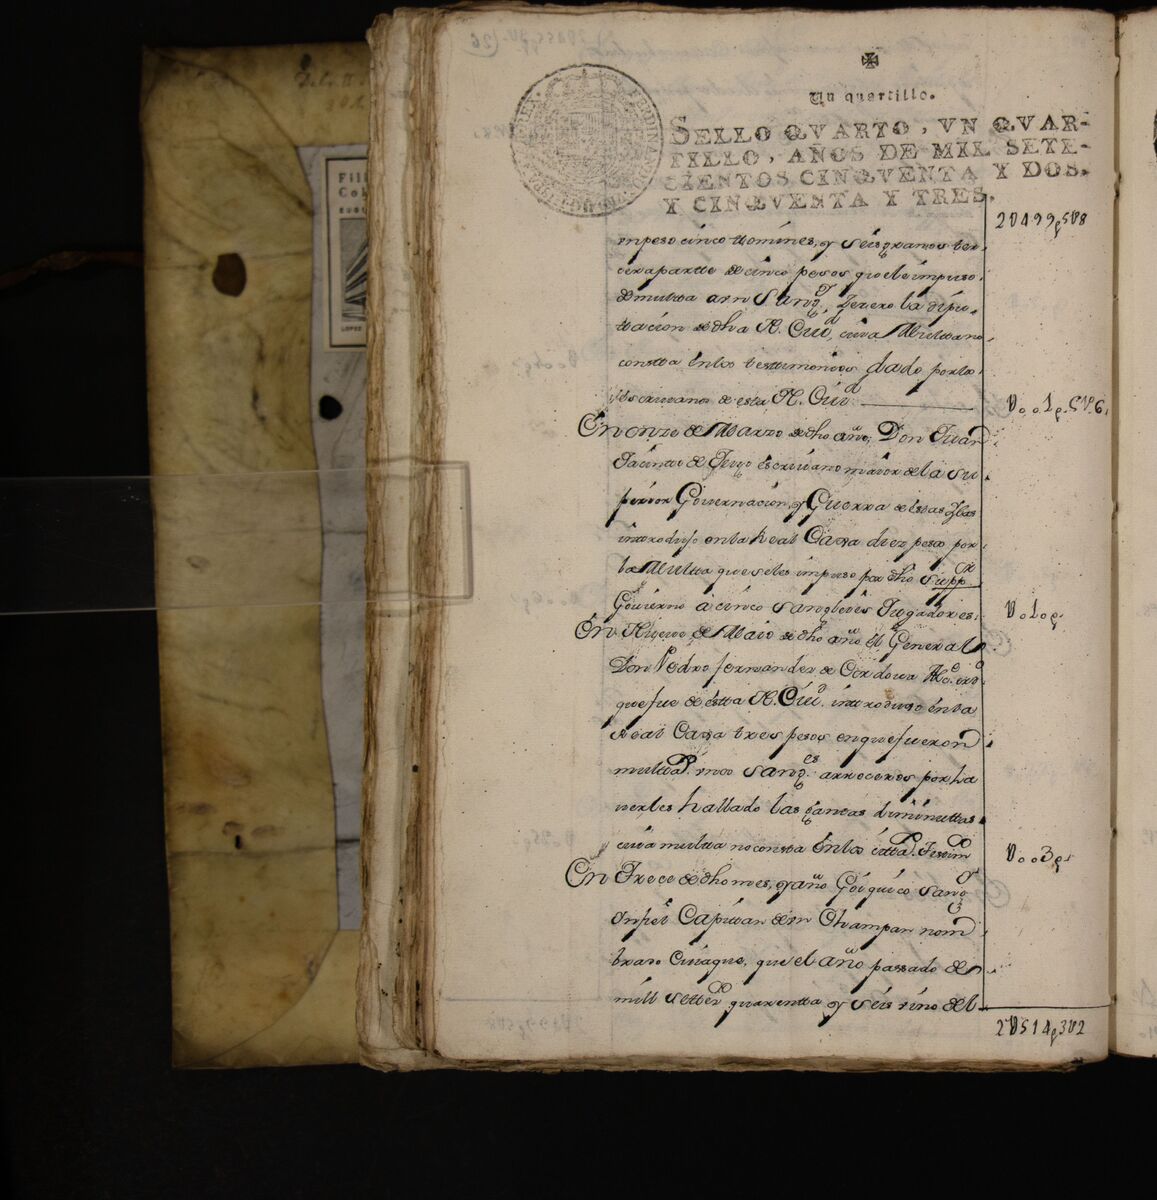 Un quartillo.
SELLO QVARTO, VN QVAR-
TILLO, AÑOS DE MIL SETE-
CIENTOS CINQVENTA Y DOS,
Y CINQVENTA Y TRES.
2U499p5U8
unpeso cinco ttomines, y seis granos ter-
cera partte de cinco pesos que le impuso
de multta a un Sangley Tezero la dipu-
ttacion de dha N. Ciud, cuia Multta no
constta en los testtimonios dado por los
escrivanos de esta N. Ciud
U001p5U6
En onze de Marzo de dho año, Don Juan
Jacinto de escrivano maior de la su-
perior Governacion, y Guerra de estas Yslas
inttrodujo en la Real Caxa diez pesos por
la Multta que se les impuso por dho Supp.r
Govierno à cinco Sangleyes Jugadores
U010p
En de Maio de dho año el General
Don Pedro fernandez de Cordova
que fue de estta N. Ciud. inttrodujo en la
Real Caxa tres pesos en que fueron
multtados unos Sang.es arroceros por ha-
verles hallado las gantas diminuttas
cuia multta no consta en los
U003p
En Trece de dho mes, y año Gui quico Sangley
Ynfiel Capittan de un Champan nom-
brado que el año passado de
mill settez.s quarentta y seis vino del
2U514p3U2
Fili
Col
LOPEZ
FERDINAND
REX